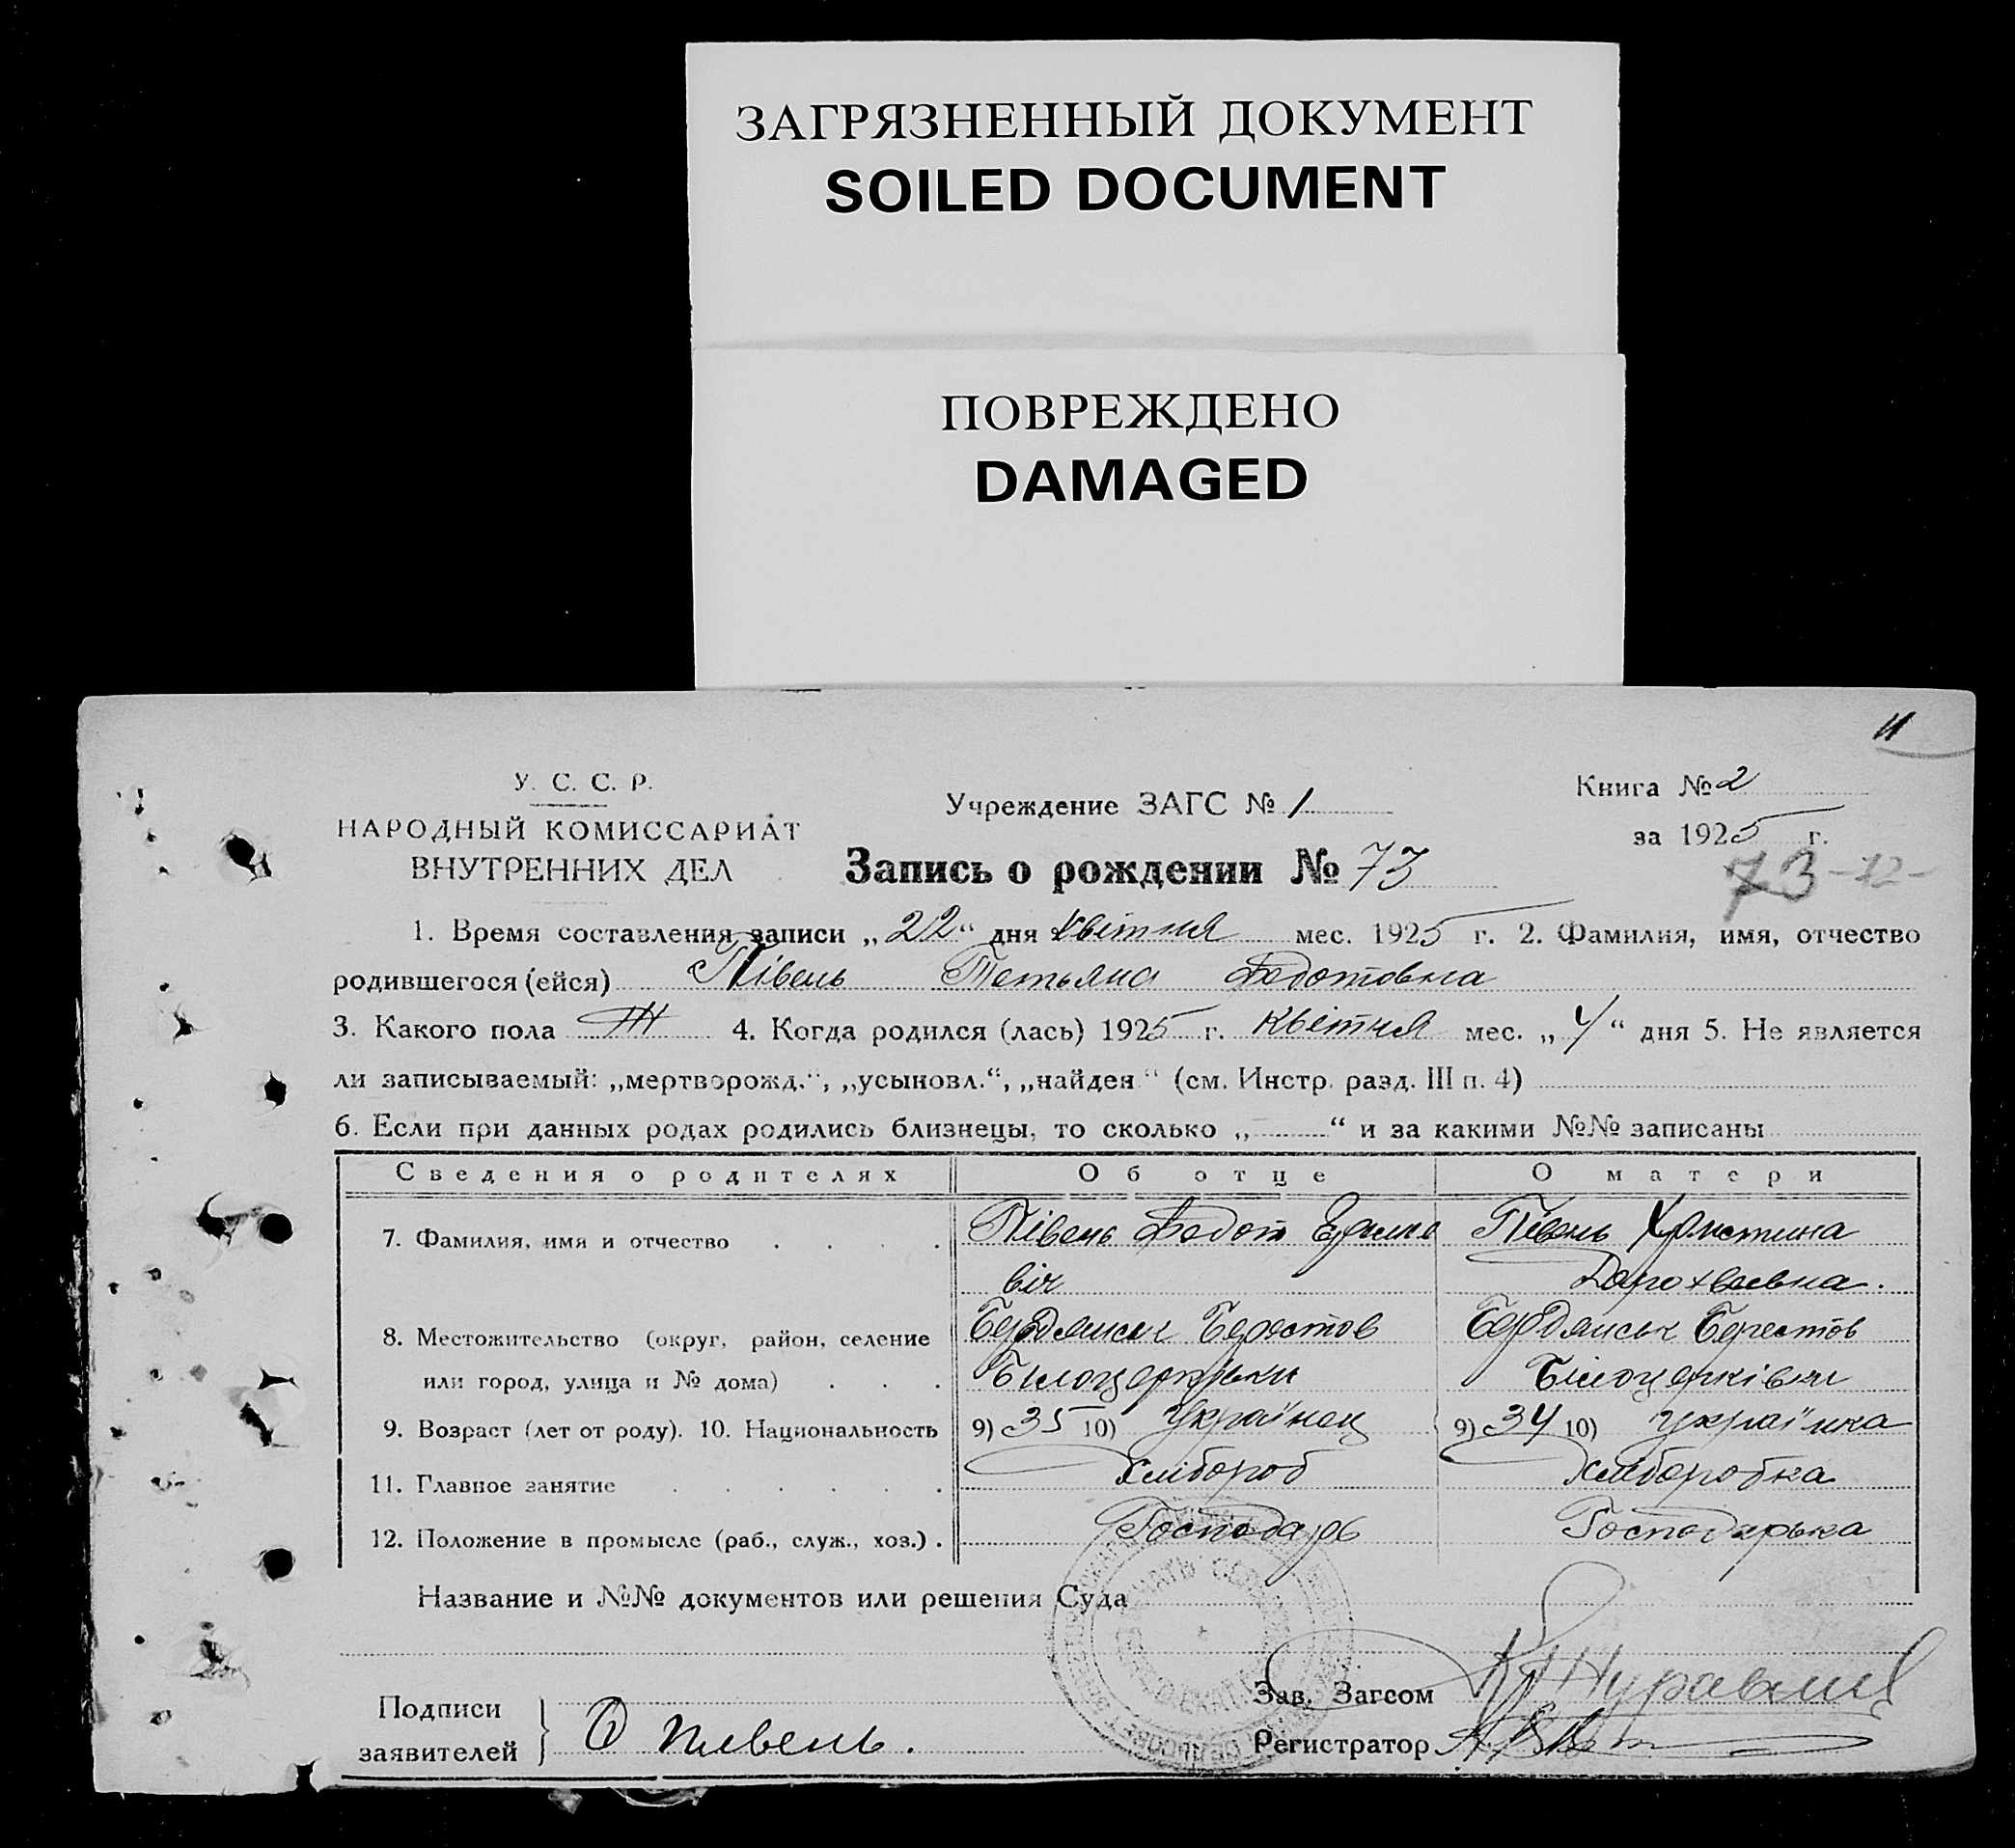 ЗАГРЯЗНЕННЫЙ ДОКУМЕНТ
SOILED DOCUMENT
ПОВРЕЖДЕНО
DAMAGED
11
У. С. С. Р.
НАРОДНЫЙ КОМИССАРИАТ
ВНУТРЕННИХ ДЕЛ
Учреждение ЗАГС № 1
Книга № 2
за 1925 г.
Запись о рождении № 73
73-12-
1. Время составления записи „22“ дня квітня мес. 1925 г. 2. Фамилия, имя, отчество
родившегося (ейся) Півень Тетьяна Федотовна
3. Какого пола Ж 4. Когда родился (лась) 1925 г. квітня мес. „4“ дня 5. Не является
ли записываемый: „мертворожд.“, „усыновл.“, „найден“ (см. Инстр. разд. III п. 4)
6. Если при данных родах родились близнецы, то сколько „ “ и за какими №№ записаны
Сведения о родителях Об отце О матери
7. Фамилия, имя и отчество Півень Федот Ефимо Півень Христина
віч
8. Местожительство (округ, район, селение Бердянськ Берестов Бердянськ Берестов
или город, улица и № дома) Білоцерківки Білоцерківки
9. Возраст (лет от роду). 10. Национальность 9) 35 10) Українец 9) 34 10) Українка
11. Главное занятие Хлібороб Хлiборобка
12. Положение в промысле (раб., служ., хоз.) Господарь Господарька
Название и №№ документов или решения Суда
Подписи
заявителей Ф Пивень.
Зав. Загсом
Регистратор